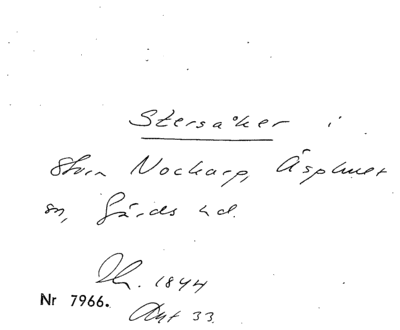 Stersåker i
Stora Nockarp, Äsphult
sn, Gärds hd.
1844
Nr 7966.
Akt 33